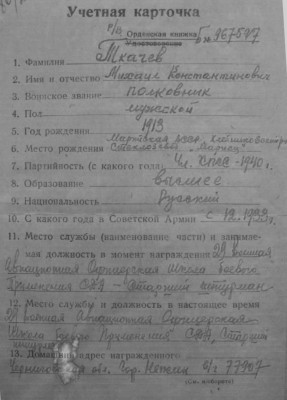 Учетная карточка
Орденская книжка Б № 967597
Удостоверение
1. Фамилия Ткачев
2. Имя и отчество Михаил Константинович
3. Воинское звание полковник
4. Пол мужской
5. Год рождения 1913
6. Место рождения
7. Партийность (с какого года) Чл. КПСС - 1940 г.
8. Образование высшее
9. Национальность Русский
10. С какого года в Советской Армии с 12.
11. Место службы (наименование части) и занимае-
мая должность в момент награждения военная
Авиационная Офицерская Школа боевого
Применения старший штурман
12. Место службы и должность в настоящее время
военная Авиационная Офицерская
Школа боевого Применения Старший
штурман
13. Домашний адрес награжденного
Черниговская обл. гор. Нежин п/я 77907